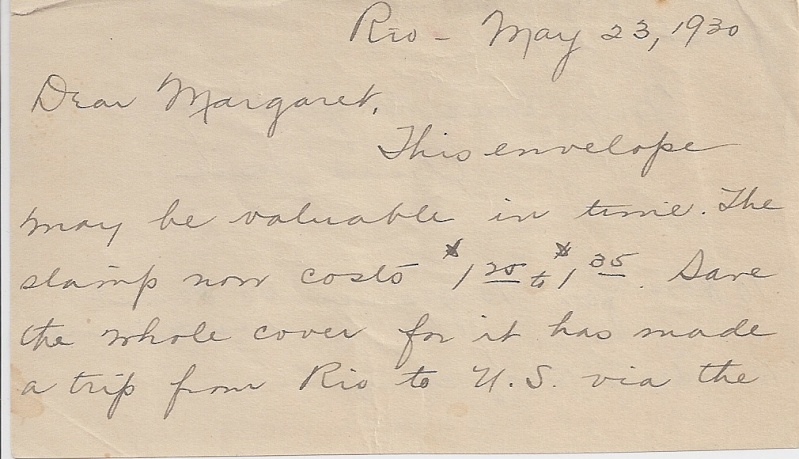 Rio - May 23, 1930
Dear Margaret,
This envelope
may be valuable in time. The
stamp now costs $1 25 to $1 35. Save
the whole cover for it has made
a trip from Rio to U.S. via the